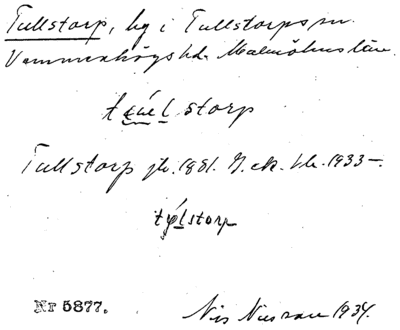 Tullstorp, by i Tullstorps sn.
Vemmenhögs hd. Malmöhus län.
storp
Tullstorp jb. 1881. G. ek. bl. 1933–.
storp
Nr 5877.
Nils 1934.